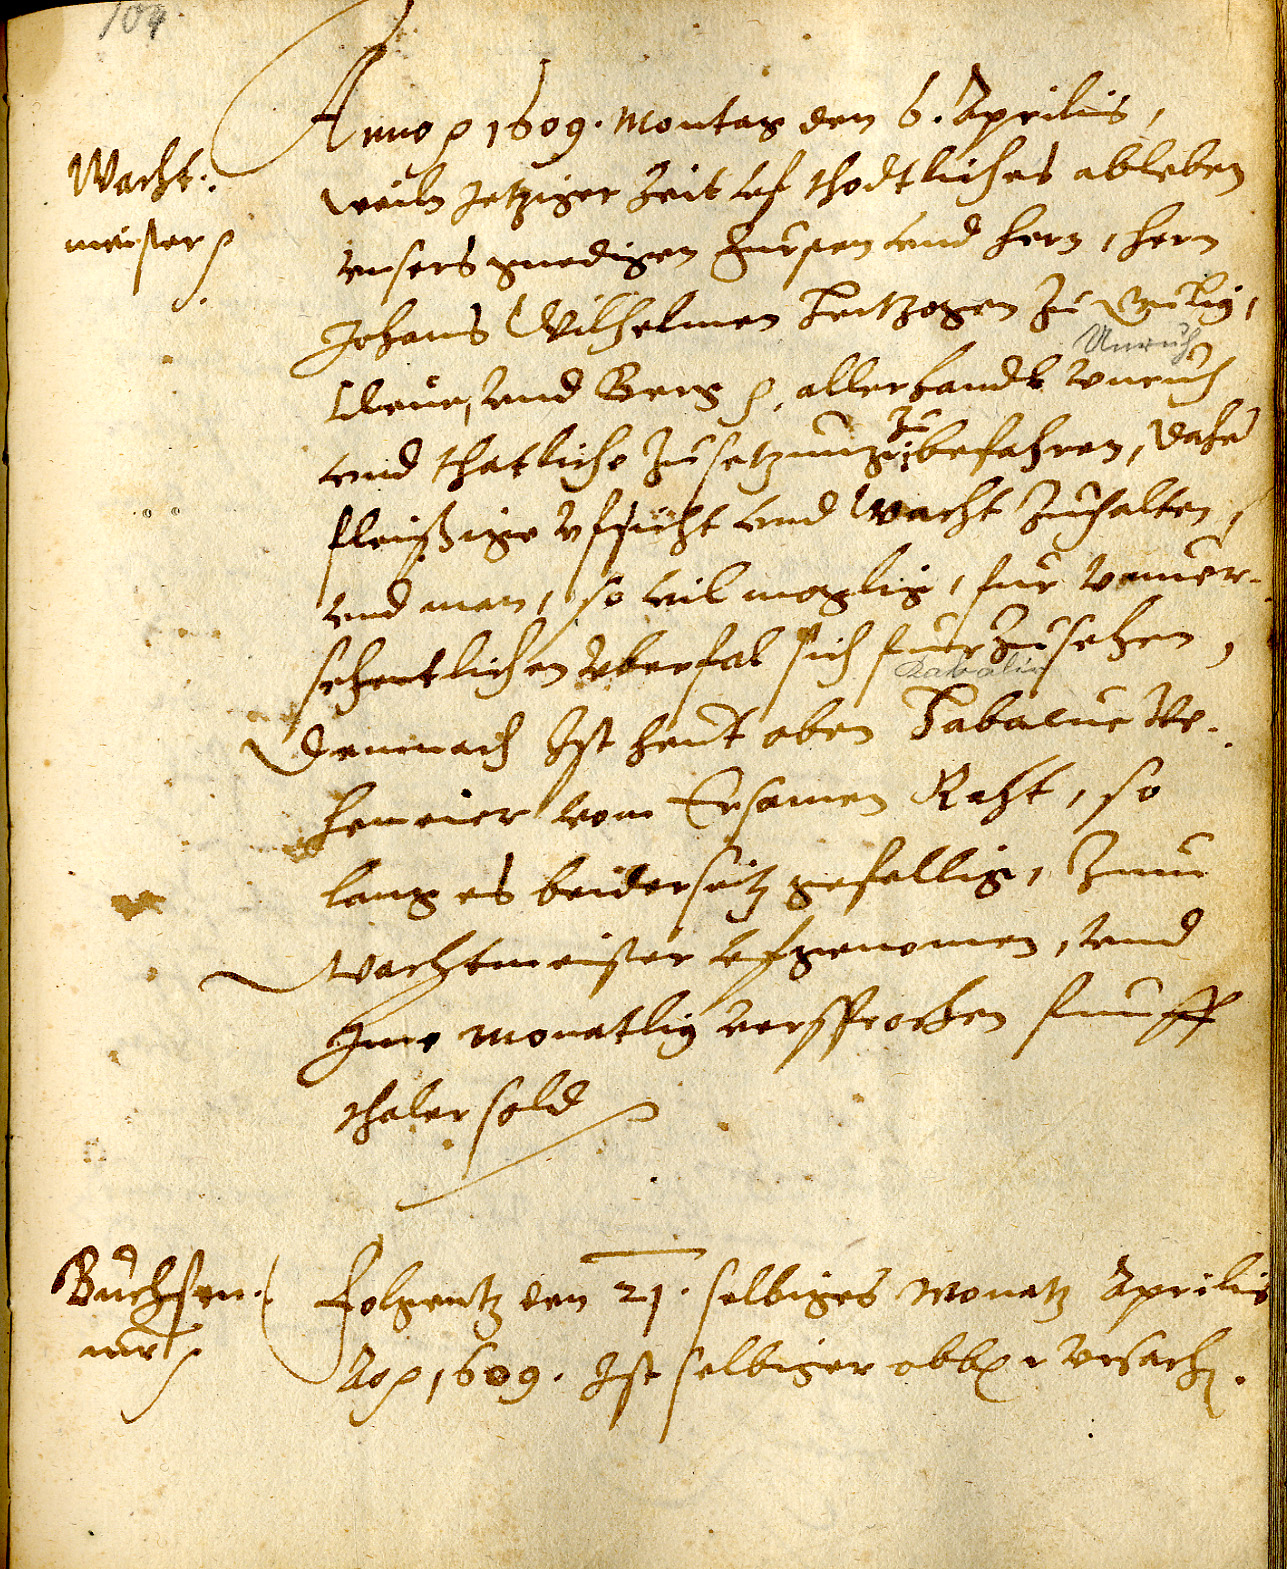 104
Wacht-
meister
Anno 1609. Montag den 6. Aprilis,
weiln Jetziger Zeit uf thodtliches ableben
unsers gnedigen Fursten und hern, hern
Johans Wilhelmen Hertzogen zu Gulig,
Unruh
Cleve, und Berg, allerhandt Unruh
zu
und thatliche Zusetzung befahren, dahe
fleißige Ufsicht und Wacht Zuhalten,
und man, so vil moglig, fur unver-
sehentlichen Uberfal sich furzusehen,
Demnach Ist heut oben
hemeier vom Ersamen Raht, so
lang es beiderseitz gefellig, Zum
Wachtmeister ufgenomen, und
Ime monatlig versprochen funff
thaler sold
Buchsen-
mr
Folgentz den 21. selbiges Monatz Aprilis
Ao 1609. Ist selbiger Ursach